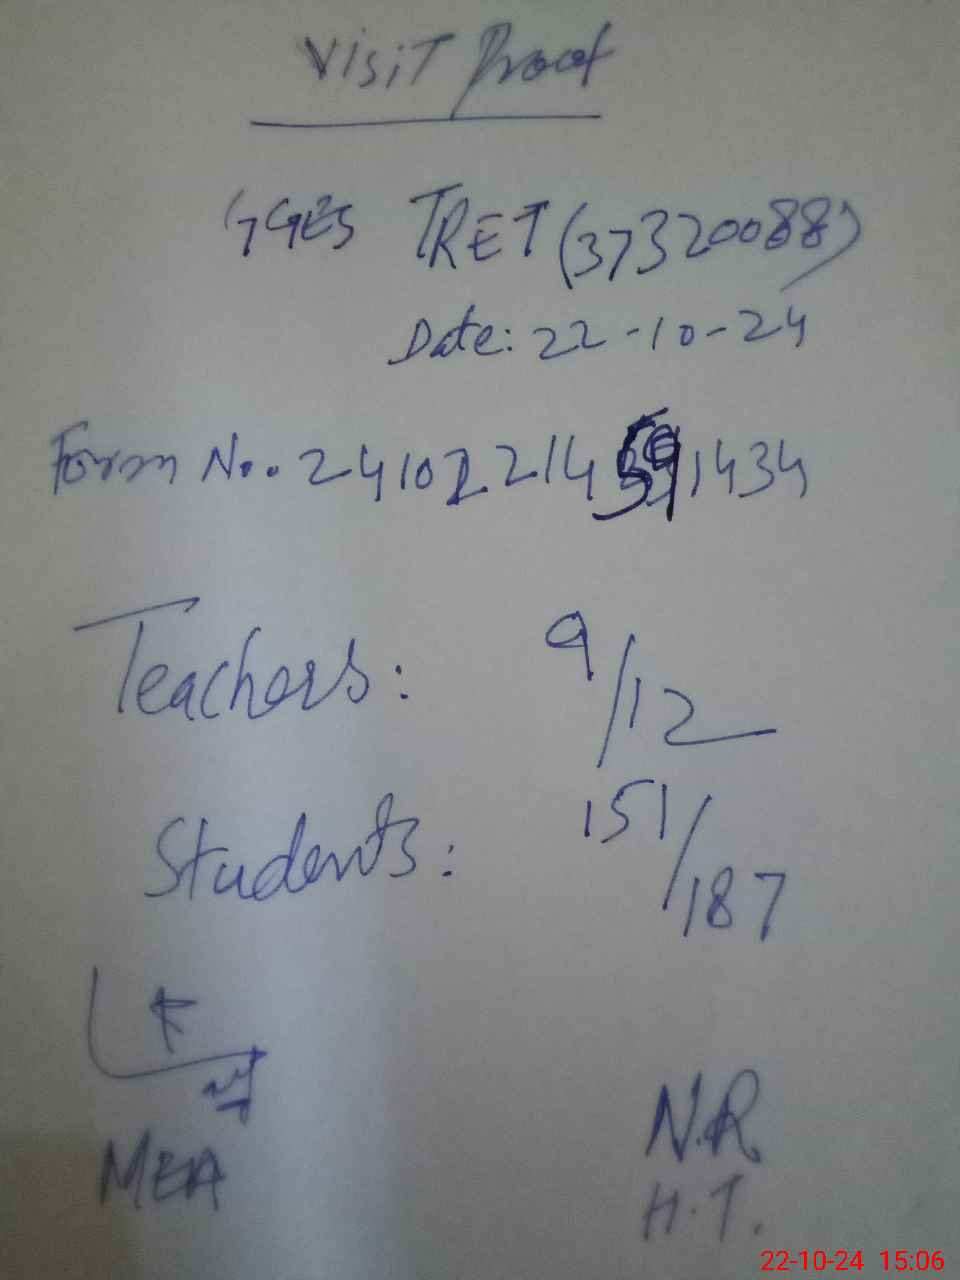 Visit Proof
GGES TRET (37320088)
Date: 22-10-24
Form No.. 24102214591434
Teachers: 9/12
Students: 151/187
MEA
N.R
H.T.
22-10-24 15:06